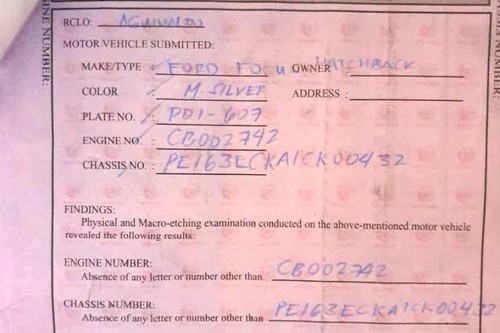 RCLO: AGUINALDO
MOTOR VEHICLE SUBMITTED:
MAKE/TYPE : FORD FOCU HATCHBACK OWNER :
COLOR : M. SILVER ADDRESS :
PLATE NO. : PDI-607
ENGINE NO. : CB002742
CHASSIS NO. : PE163ECKA1CK00432
FINDINGS:
Physical and Macro-etching examination conducted on the above-mentioned motor vehicle
revealed the following results:
ENGINE NUMBER:
Absence of any letter or number other than CB002742
CHASSIS NUMBER:
Absence of any letter or number other than PE163ECKA1CK00432
NE NUMBER:
SIS NUMBER: